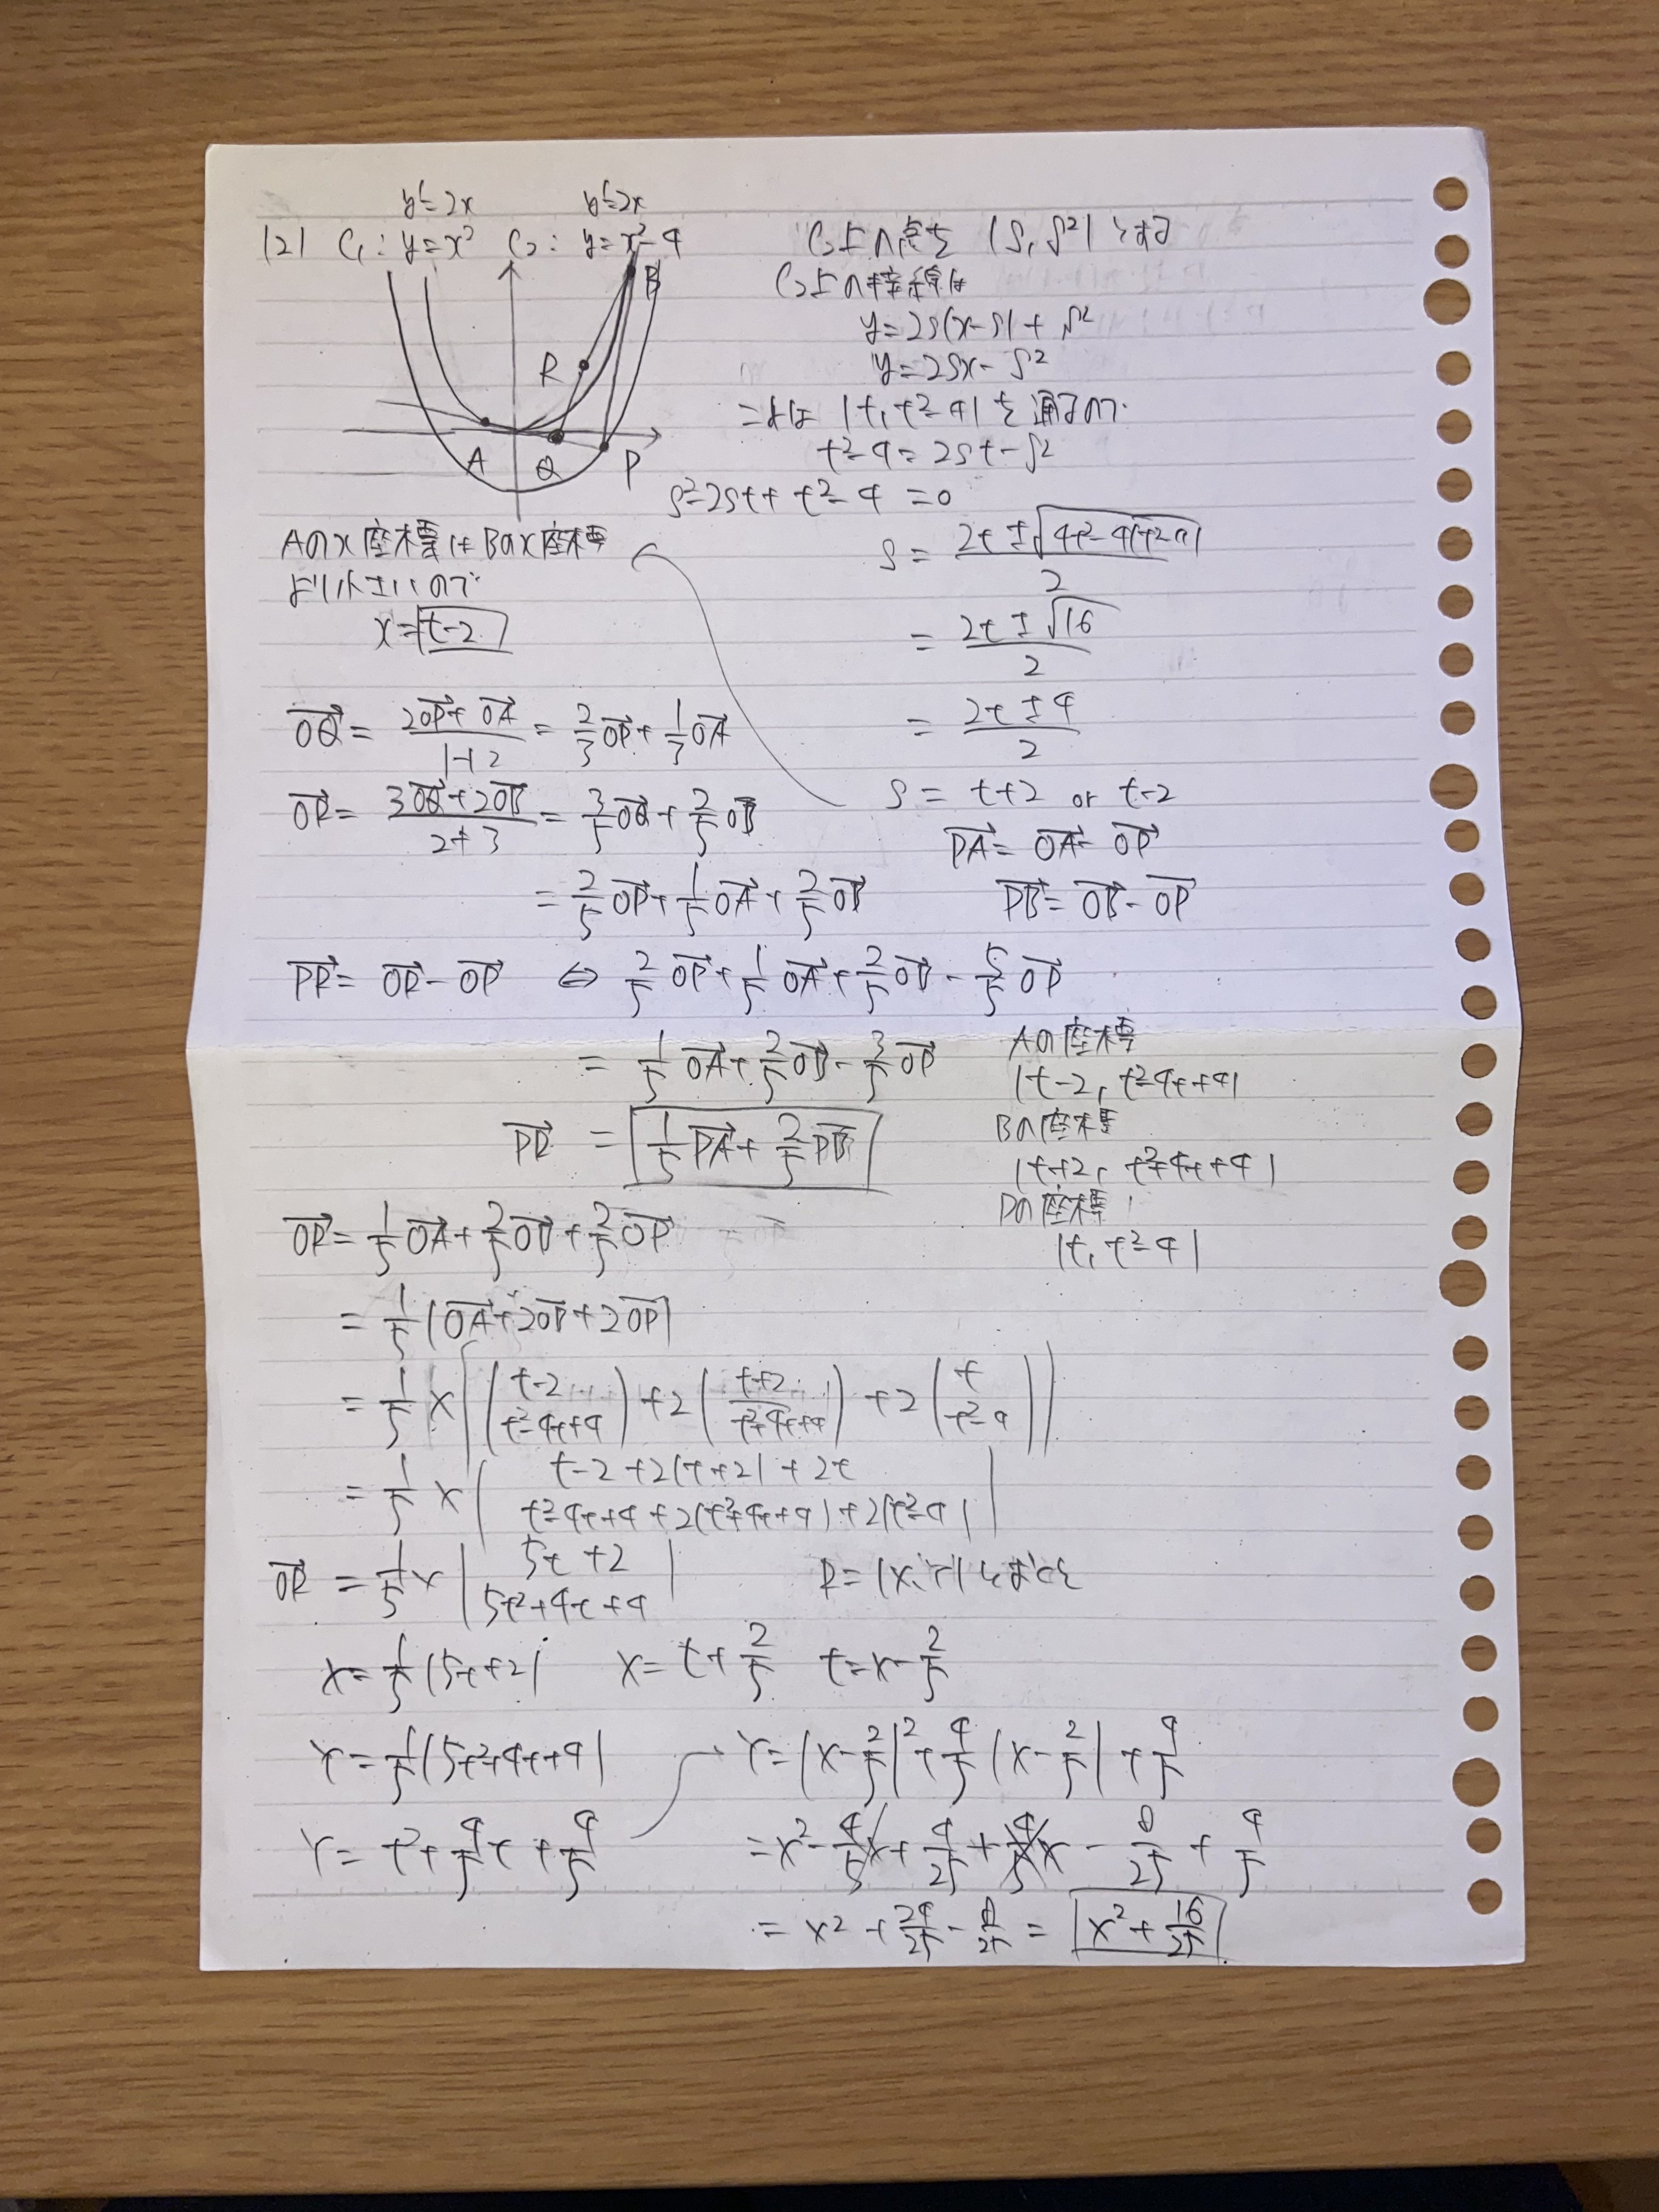 y'=2x y'=2x
(2) C₁: y=x² C₂: y=x²-4
B
R
A Q P
C₂上の点を (s, s²) とする
C₂上の接線は
y=2s(x-s)+s²
y=2sx-s²
これは (t, t²-4) を通るので
t²-4=2st-s²
s²-2st+t²-4=0
s=\frac{2t±\sqrt{4t²-4(t²-4)}}{2}
=\frac{2t±\sqrt{16}}{2}
=\frac{2t±4}{2}
s=t+2 or t-2
Aのx座標はBのx座標
より小さいので
x=t-2
\vec{OQ}=\frac{2\vec{OP}+\vec{OA}}{1+2}=\frac{2}{3}\vec{OP}+\frac{1}{3}\vec{OA}
\vec{OR}=\frac{3\vec{OQ}+2\vec{OB}}{2+3}=\frac{3}{5}\vec{OQ}+\frac{2}{5}\vec{OB}
=\frac{2}{5}\vec{OP}+\frac{1}{5}\vec{OA}+\frac{2}{5}\vec{OB}
\vec{PA}=\vec{OA}-\vec{OP}
\vec{PB}=\vec{OB}-\vec{OP}
\vec{PR}=\vec{OR}-\vec{OP} ⇔ \frac{2}{5}\vec{OP}+\frac{1}{5}\vec{OA}+\frac{2}{5}\vec{OB}-\frac{5}{5}\vec{OP}
=\frac{1}{5}\vec{OA}+\frac{2}{5}\vec{OB}-\frac{3}{5}\vec{OP}
\vec{PR}=\frac{1}{5}\vec{PA}+\frac{2}{5}\vec{PB}
Aの座標
(t-2, t²-4t+4)
Bの座標
(t+2, t²+4t+4)
Pの座標
(t, t²-4)
\vec{OR}=\frac{1}{5}\vec{OA}+\frac{2}{5}\vec{OB}+\frac{2}{5}\vec{OP}
=\frac{1}{5}(\vec{OA}+2\vec{OB}+2\vec{OP})
=\frac{1}{5}×((t-2 / t²-4t+4)+2(t+2 / t²+4t+4)+2(t / t²-4))
=\frac{1}{5}×(t-2+2(t+2)+2t / t²-4t+4+2(t²+4t+4)+2(t²-4))
\vec{OR}=\frac{1}{5}×(5t+2 / 5t²+4t+4) R=(X, Y)とおくと
X=\frac{1}{5}(5t+2) X=t+\frac{2}{5} t=X-\frac{2}{5}
Y=\frac{1}{5}(5t²+4t+4)
Y=t²+\frac{4}{5}t+\frac{4}{5}
Y=(X-\frac{2}{5})²+\frac{4}{5}(X-\frac{2}{5})+\frac{4}{5}
=X²-\frac{4}{5}X+\frac{4}{25}+\frac{4}{5}X-\frac{8}{25}+\frac{4}{5}
=X²+\frac{24}{25}-\frac{8}{25}=X²+\frac{16}{25}